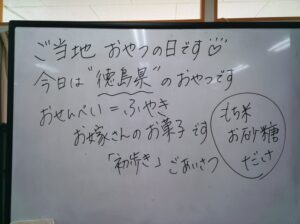 ご当地 おやつの日です♡
今日は"徳島県"のおやつです
おせんべい=ふやき
お嫁さんのお菓子です
「初歩き」ごあいさつ
もち米
お砂糖
だけ